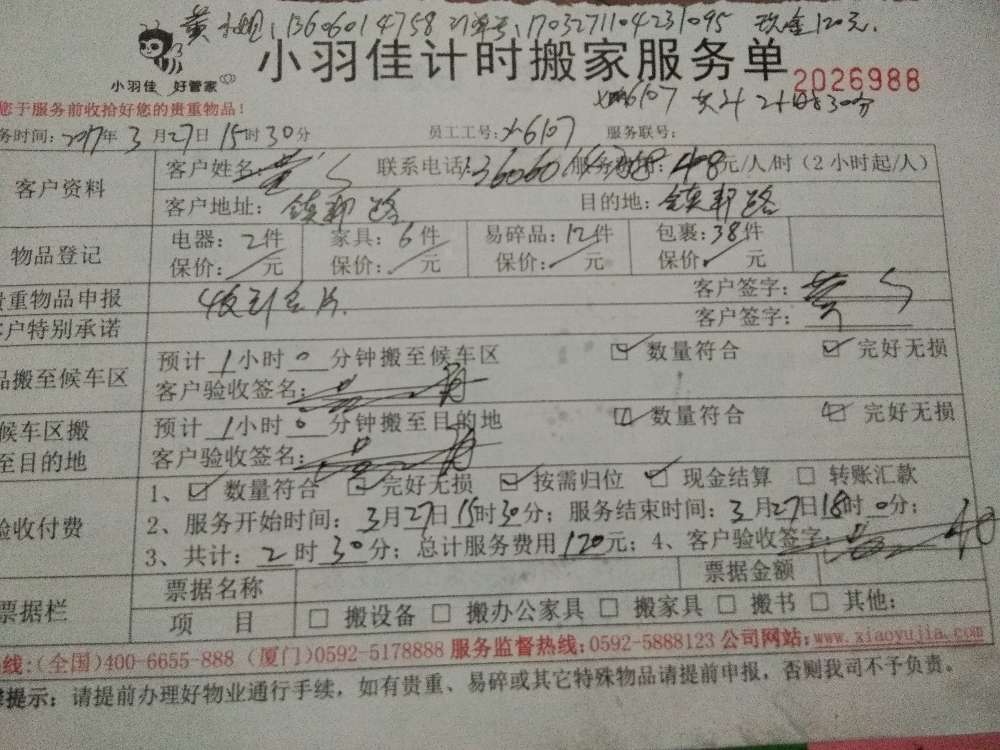 黄小姐:13606014758 订单号:1703271104231095 现金120元.
小羽佳 好管家
小羽佳计时搬家服务单
2026988
x6107 共计2时30分
您于服务前收拾好您的贵重物品!
务时间:2017年3月27日15时30分 员工工号:x6107 服务联号:
客户资料 客户姓名: 黄 联系电话:36060 48元/人/时(2小时起/人)
客户地址:镇邦路 目的地:镇邦路
物品登记 电器:2件 家具:6件 易碎品:12件 包裹:38件
保价:/元 保价:/元 保价:/元 保价:/元
贵重物品申报 客户签字:
客户特别承诺 客户签字:
品搬至候车区 预计1小时0分钟搬至候车区 ☑数量符合 ☑完好无损
客户验收签名:
候车区搬至目的地 预计1小时0分钟搬至目的地 ☑数量符合 ☑完好无损
客户验收签名:
验收付费 1、☑数量符合 ☑完好无损 ☑按需归位 ☑现金结算 □转账汇款
2、服务开始时间:3月27日15时30分;服务结束时间:3月27日18时0分;
3、共计:2时30分;总计服务费用120元;4、客户验收签字:
票据栏 票据名称 票据金额
项 目 □搬设备 □搬办公家具 □搬家具 □搬书 □其他:
线:(全国)400-6655-888 (厦门)0592-5178888 服务监督热线:0592-5888123 公司网站:www.xiaoyujia.com
提示:请提前办理好物业通行手续,如有贵重、易碎或其它特殊物品请提前申报,否则我司不予负责。